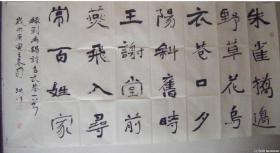 朱雀橋邊
野草花烏
衣巷口夕
陽斜舊時
王謝堂前
燕飛入尋
常百姓家
錄劉禹錫詩烏衣巷一首